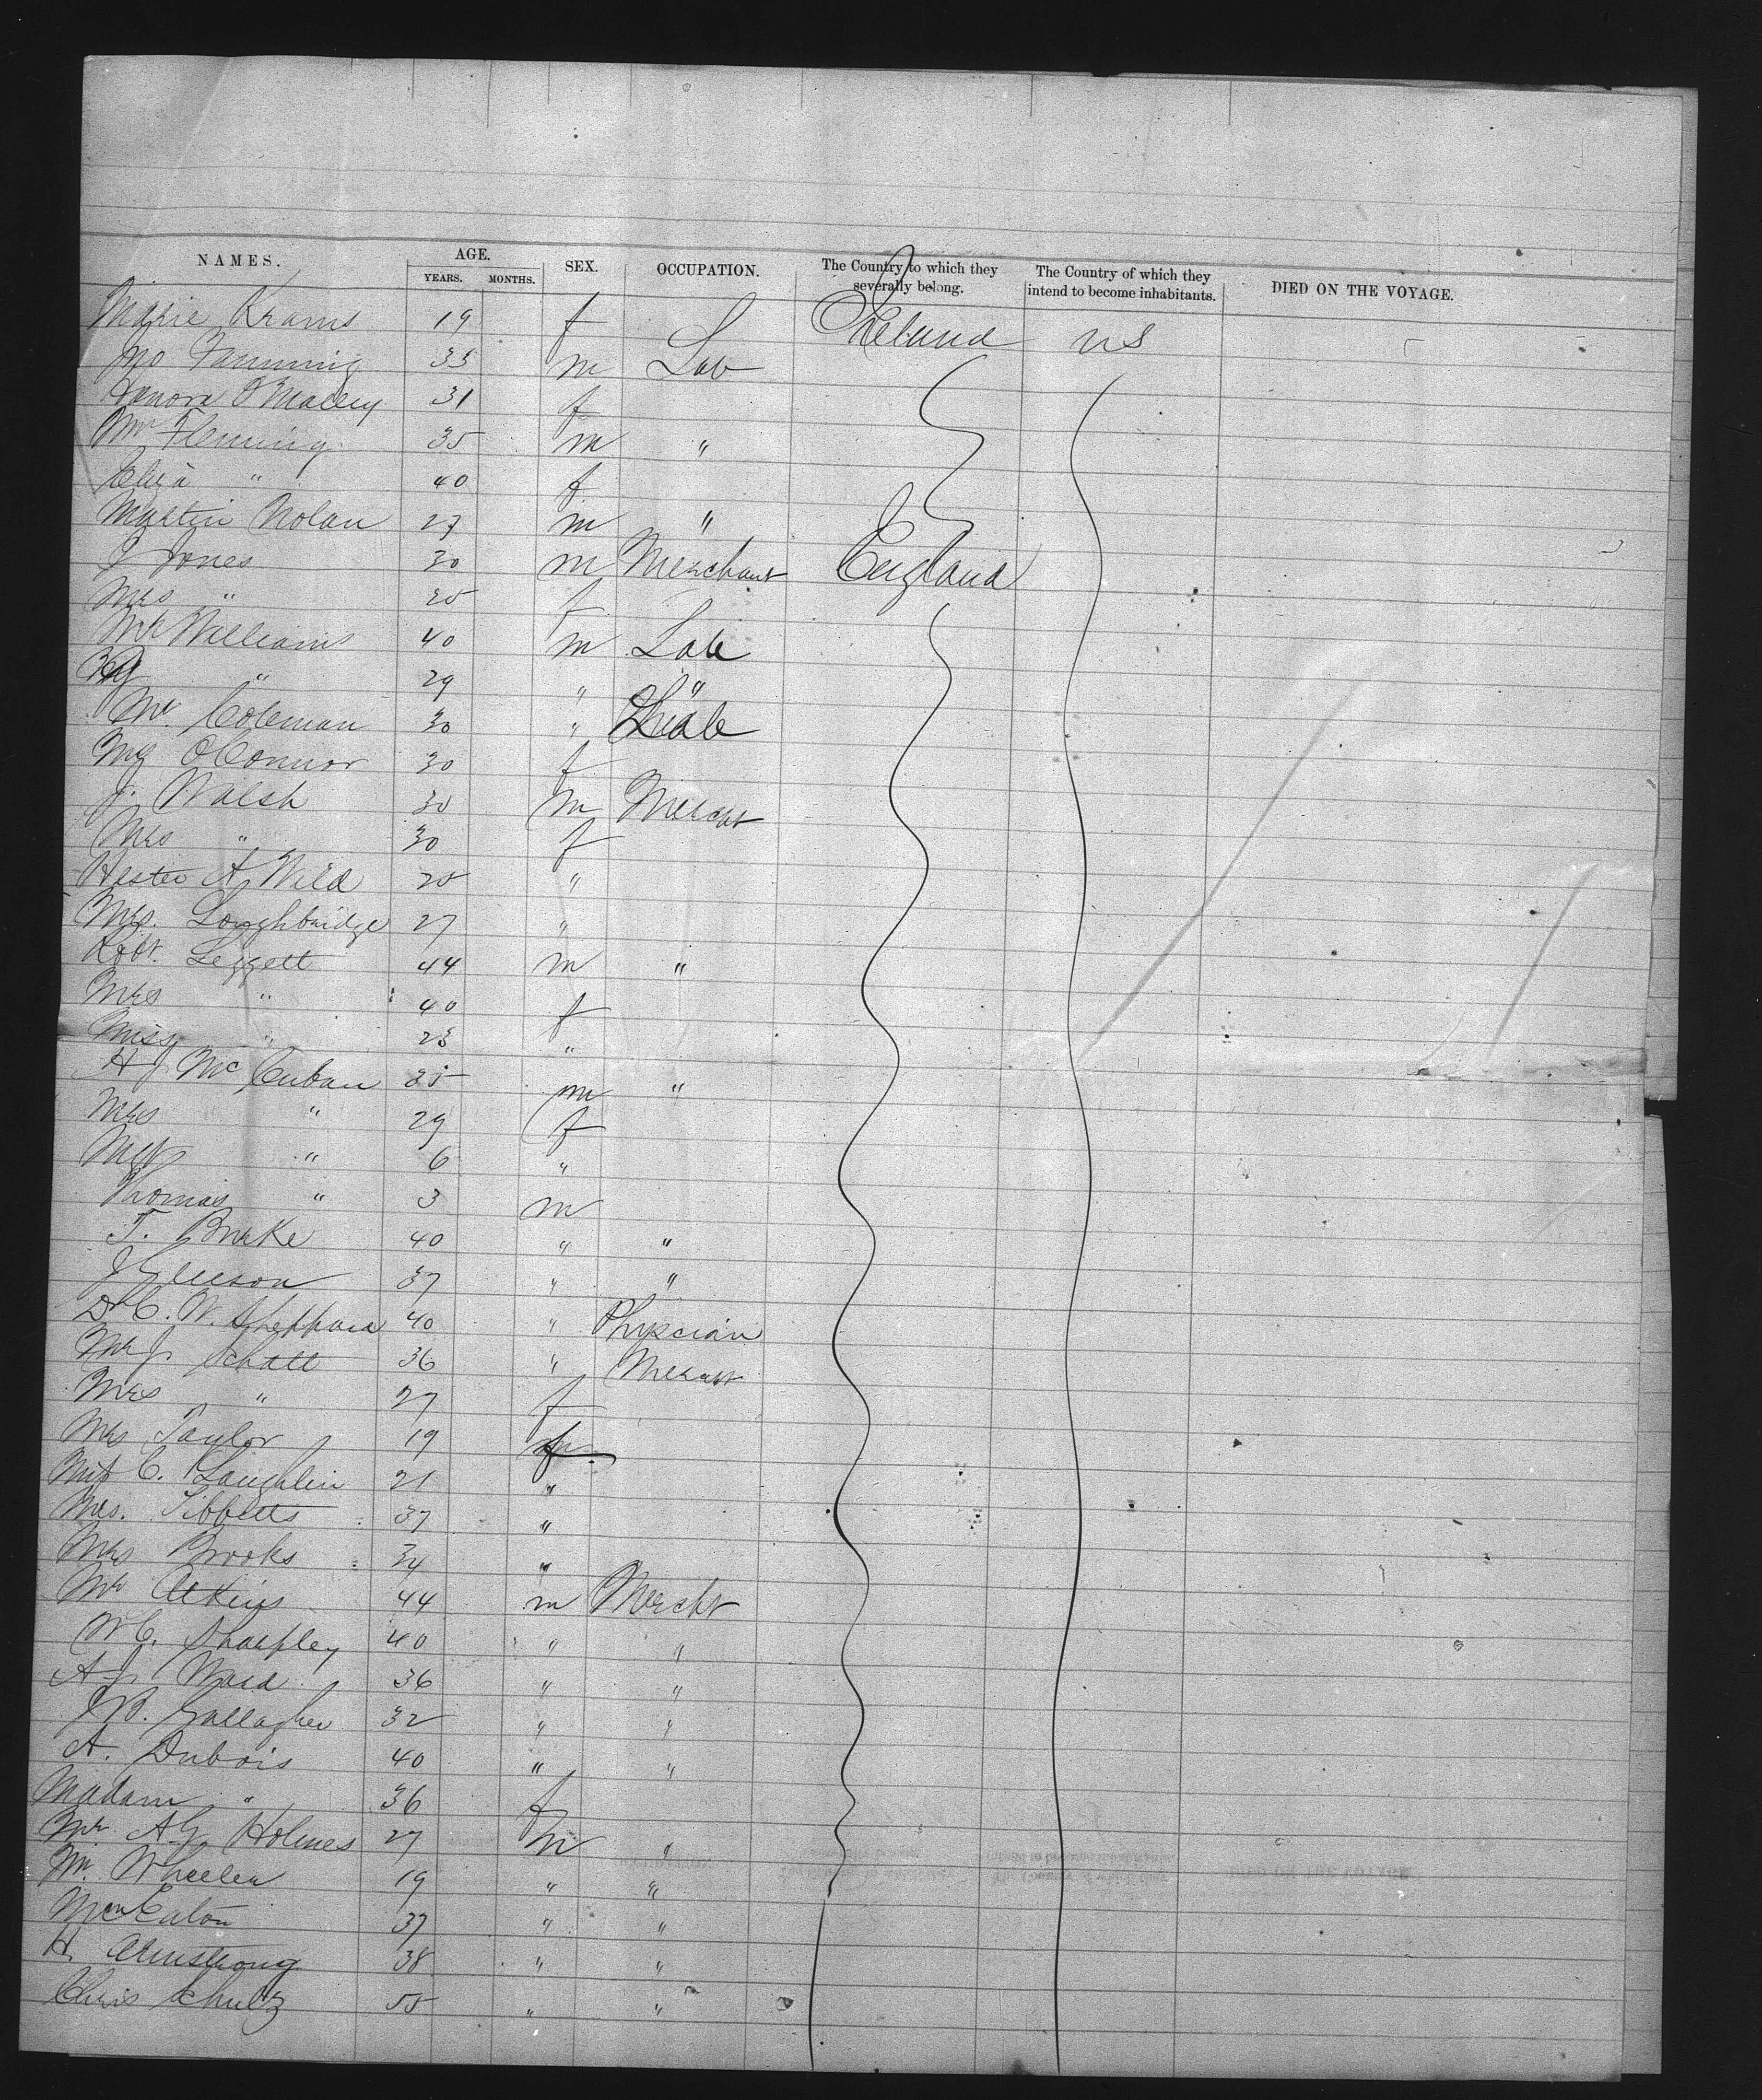 NAMES. AGE. SEX. OCCUPATION. The Country to which they severally belong. The Country of which they intend to become inhabitants. DIED ON THE VOYAGE.
YEARS. MONTHS.
Marie Krams 19 f Ireland US
33 m Lab
Honora O'Malley 31 f
Mr Fleming 35 m "
Eliza " 40 f
Martin Nolan 27 m "
J Jones 30 m Merchant England
Mrs " 25 f
Mr Williams 40 m Lab
" 29 " "
Mr. Coleman 30 " Lab
Mg OConnor 30 f
J. Walsh 30 m Mercht
Mrs " 30 f
Hester A Wild 25 "
Mrs. Loughbridge 27 "
Robt. Leggett 44 m "
Mrs " 40 f
Miss " 23 "
H J Mc Cuban 35 m "
Mrs " 29 f
" 6 "
Thomas " 3 m
T. Burke 40 " "
J Gleeson 37 " "
Dr C. W. Sheppard 40 " Physcian
Mr J. Schall 36 " Mercht
Mrs " 27 f
Mrs Taylor 19 f
Miss C. Laughlin 21 "
Mrs. Tibbetts 37 "
Mrs Brooks 34 "
Mr Atkins 44 m Mercht
W C. Sharpley 40 " "
A J. Ward 36 " "
J B. Gallagher 32 " "
A. Dubois 40 " "
Madam " 36 f
Mr. A G Holmes 27 m "
Mr. Wheeler 19 " "
Eaton 37 " "
H. Armstrong 38 " "
Chris Schulz 55 " "